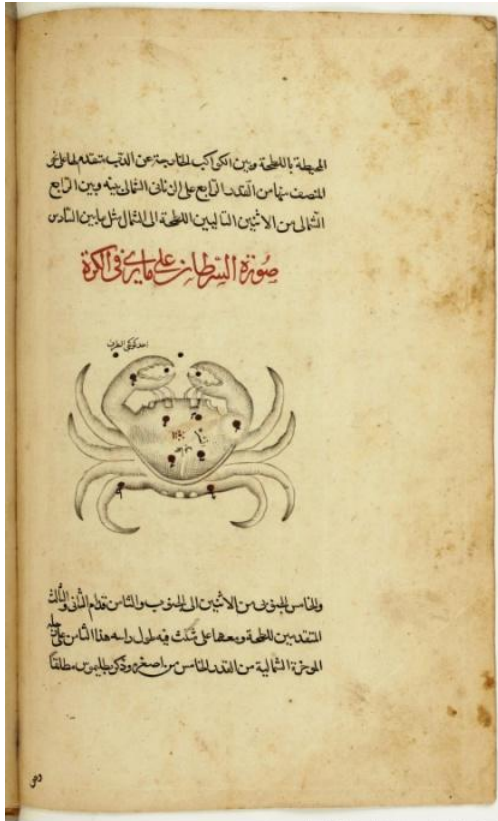 المحيطة باللطخة وبين الكواكب الخارجة عن الذنب تتقدم
المنصف منها من القدر الرابع على ان ثانى الشمالى بينه وبين الرابع
الشمالى من الاثنين التاليين اللطخة الى الشمال مثل ما بين السادس
صورة السرطان على ما يرى فى الكرة
احد كوكبى الطرف
والخامس الجنوبى من الاثنين الى الجنوب والثامن قدام الثانى والثالث
المتقدمين للطخة وبعدها على مثلث فيه طول راسه هذا الثامن على
المؤخرة الشمالية من القدر الخامس من اصغره وذكر بطلميوس مطلقا